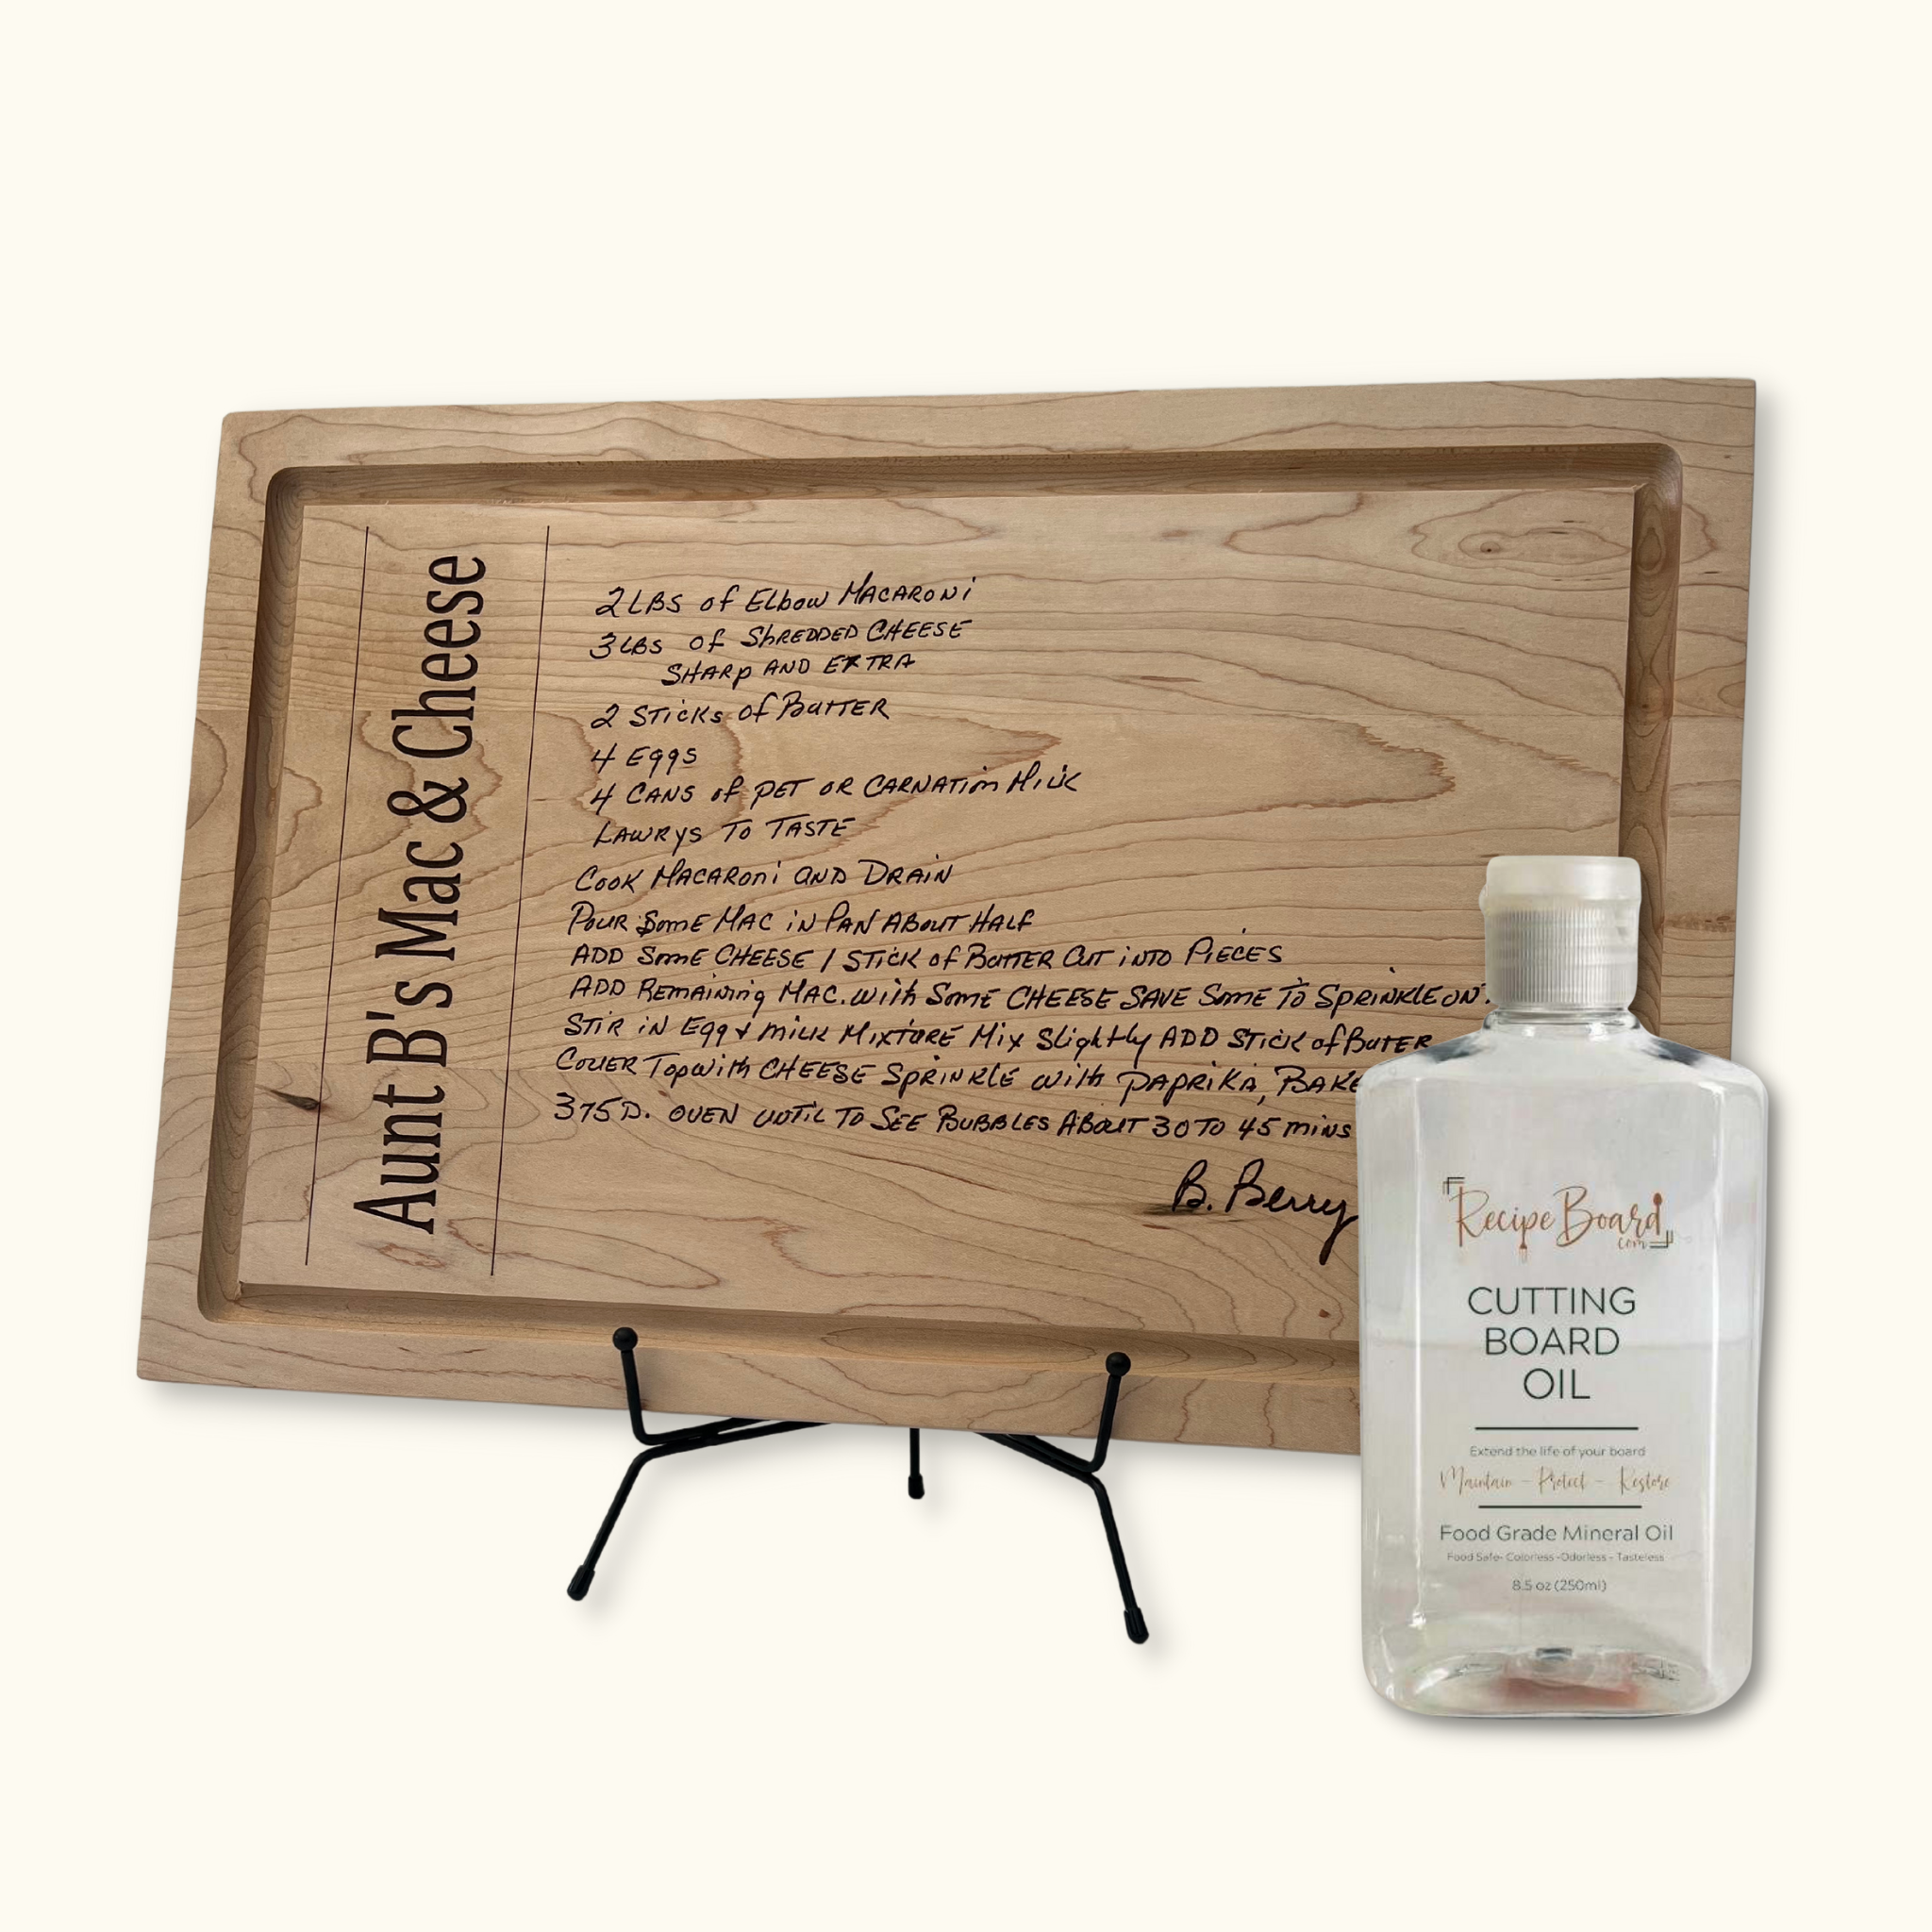 Aunt B's Mac & Cheese
2 LBS of Elbow MACARONi
3 LBS of ShREDDED CHEESE
SHARp AND EXTRA
2 STicKs of BuTTER
4 Eggs
4 CANS of PET OR CARNATion MiLK
LAWRYS TO TASTE
COOK MACARoni AND DRAIN
POUR SomE MAC iN PAN ABOUT HALF
ADD SomE CHEESE 1 STiCK of BuTTER CUT iNTO PiECES
ADD REMAiNiNg MAC. With SomE CHEESE SAVE SomE To SpRiNKLE ON
STiR iN Egg & MiLK MiXTURE MiX SlightLy ADD STiCK of BuTER
COVER Top With CHEESE SpRiNKLE with pApRiKA, BAKE
375 D. OVEN UNTiL To SEE BUBBLES ABOUT 30 TO 45 mins
B. Berry
Recipe Board
.com
CUTTING
BOARD
OIL
Extend the life of your board
Maintain - Protect - Restore
Food Grade Mineral Oil
Food Safe- Colorless -Odorless - Tasteless
8.5 oz (250ml)